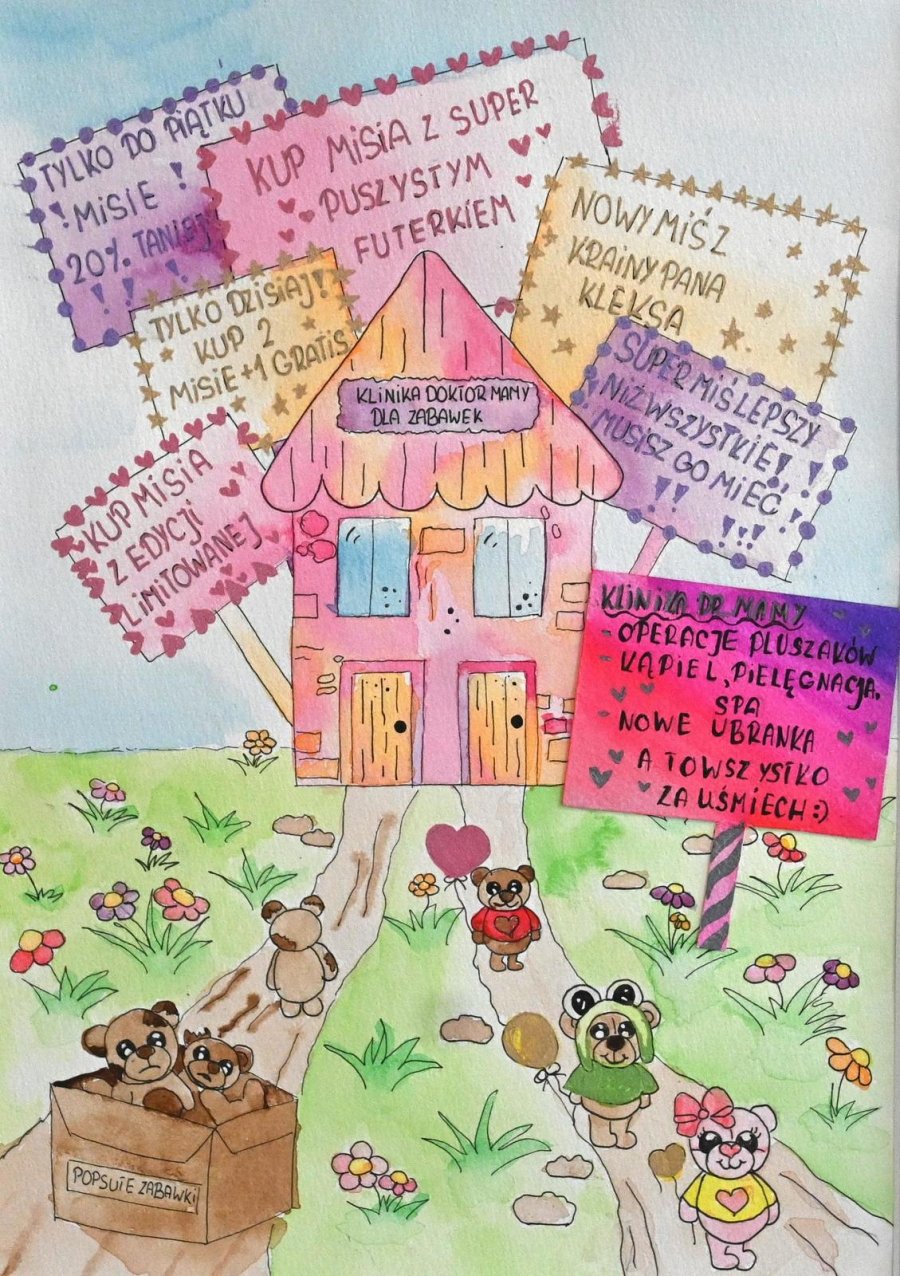 TYLKO DO PIĄTKU
! MISIE !
20% TANIEJ
KUP MISIA Z SUPER
PUSZYSTYM
FUTERKIEM
NOWY MIŚ Z
KRAINY PANA
KLEKSA
TYLKO DZISIAJ!
KUP 2
MISIE +1 GRATIS
SUPER MIŚ LEPSZY
NIŻ WSZYSTKIE!
MUSISZ GO MIEĆ
KUP MISIA
Z EDYCJI
LIMITOWANEJ
KLINIKA DOKTOR MAMY
DLA ZABAWEK
KLINIKA DR MAMY
- OPERACJE PLUSZAKÓW
- KĄPIEL, PIELĘGNACJA,
SPA
- NOWE UBRANKA
A TO WSZYSTKO
ZA UŚMIECH :)
POPSUTE ZABAWKI